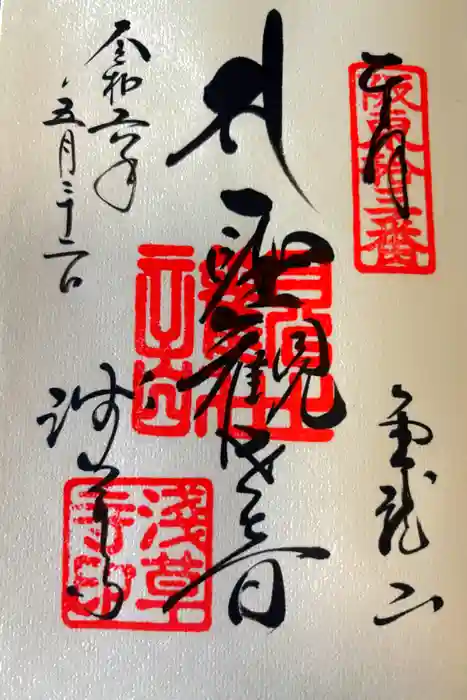 奉拝
阪東拾三番
金龍山
聖観世音
令和六年
五月二十二日
浅草寺
浅草寺印